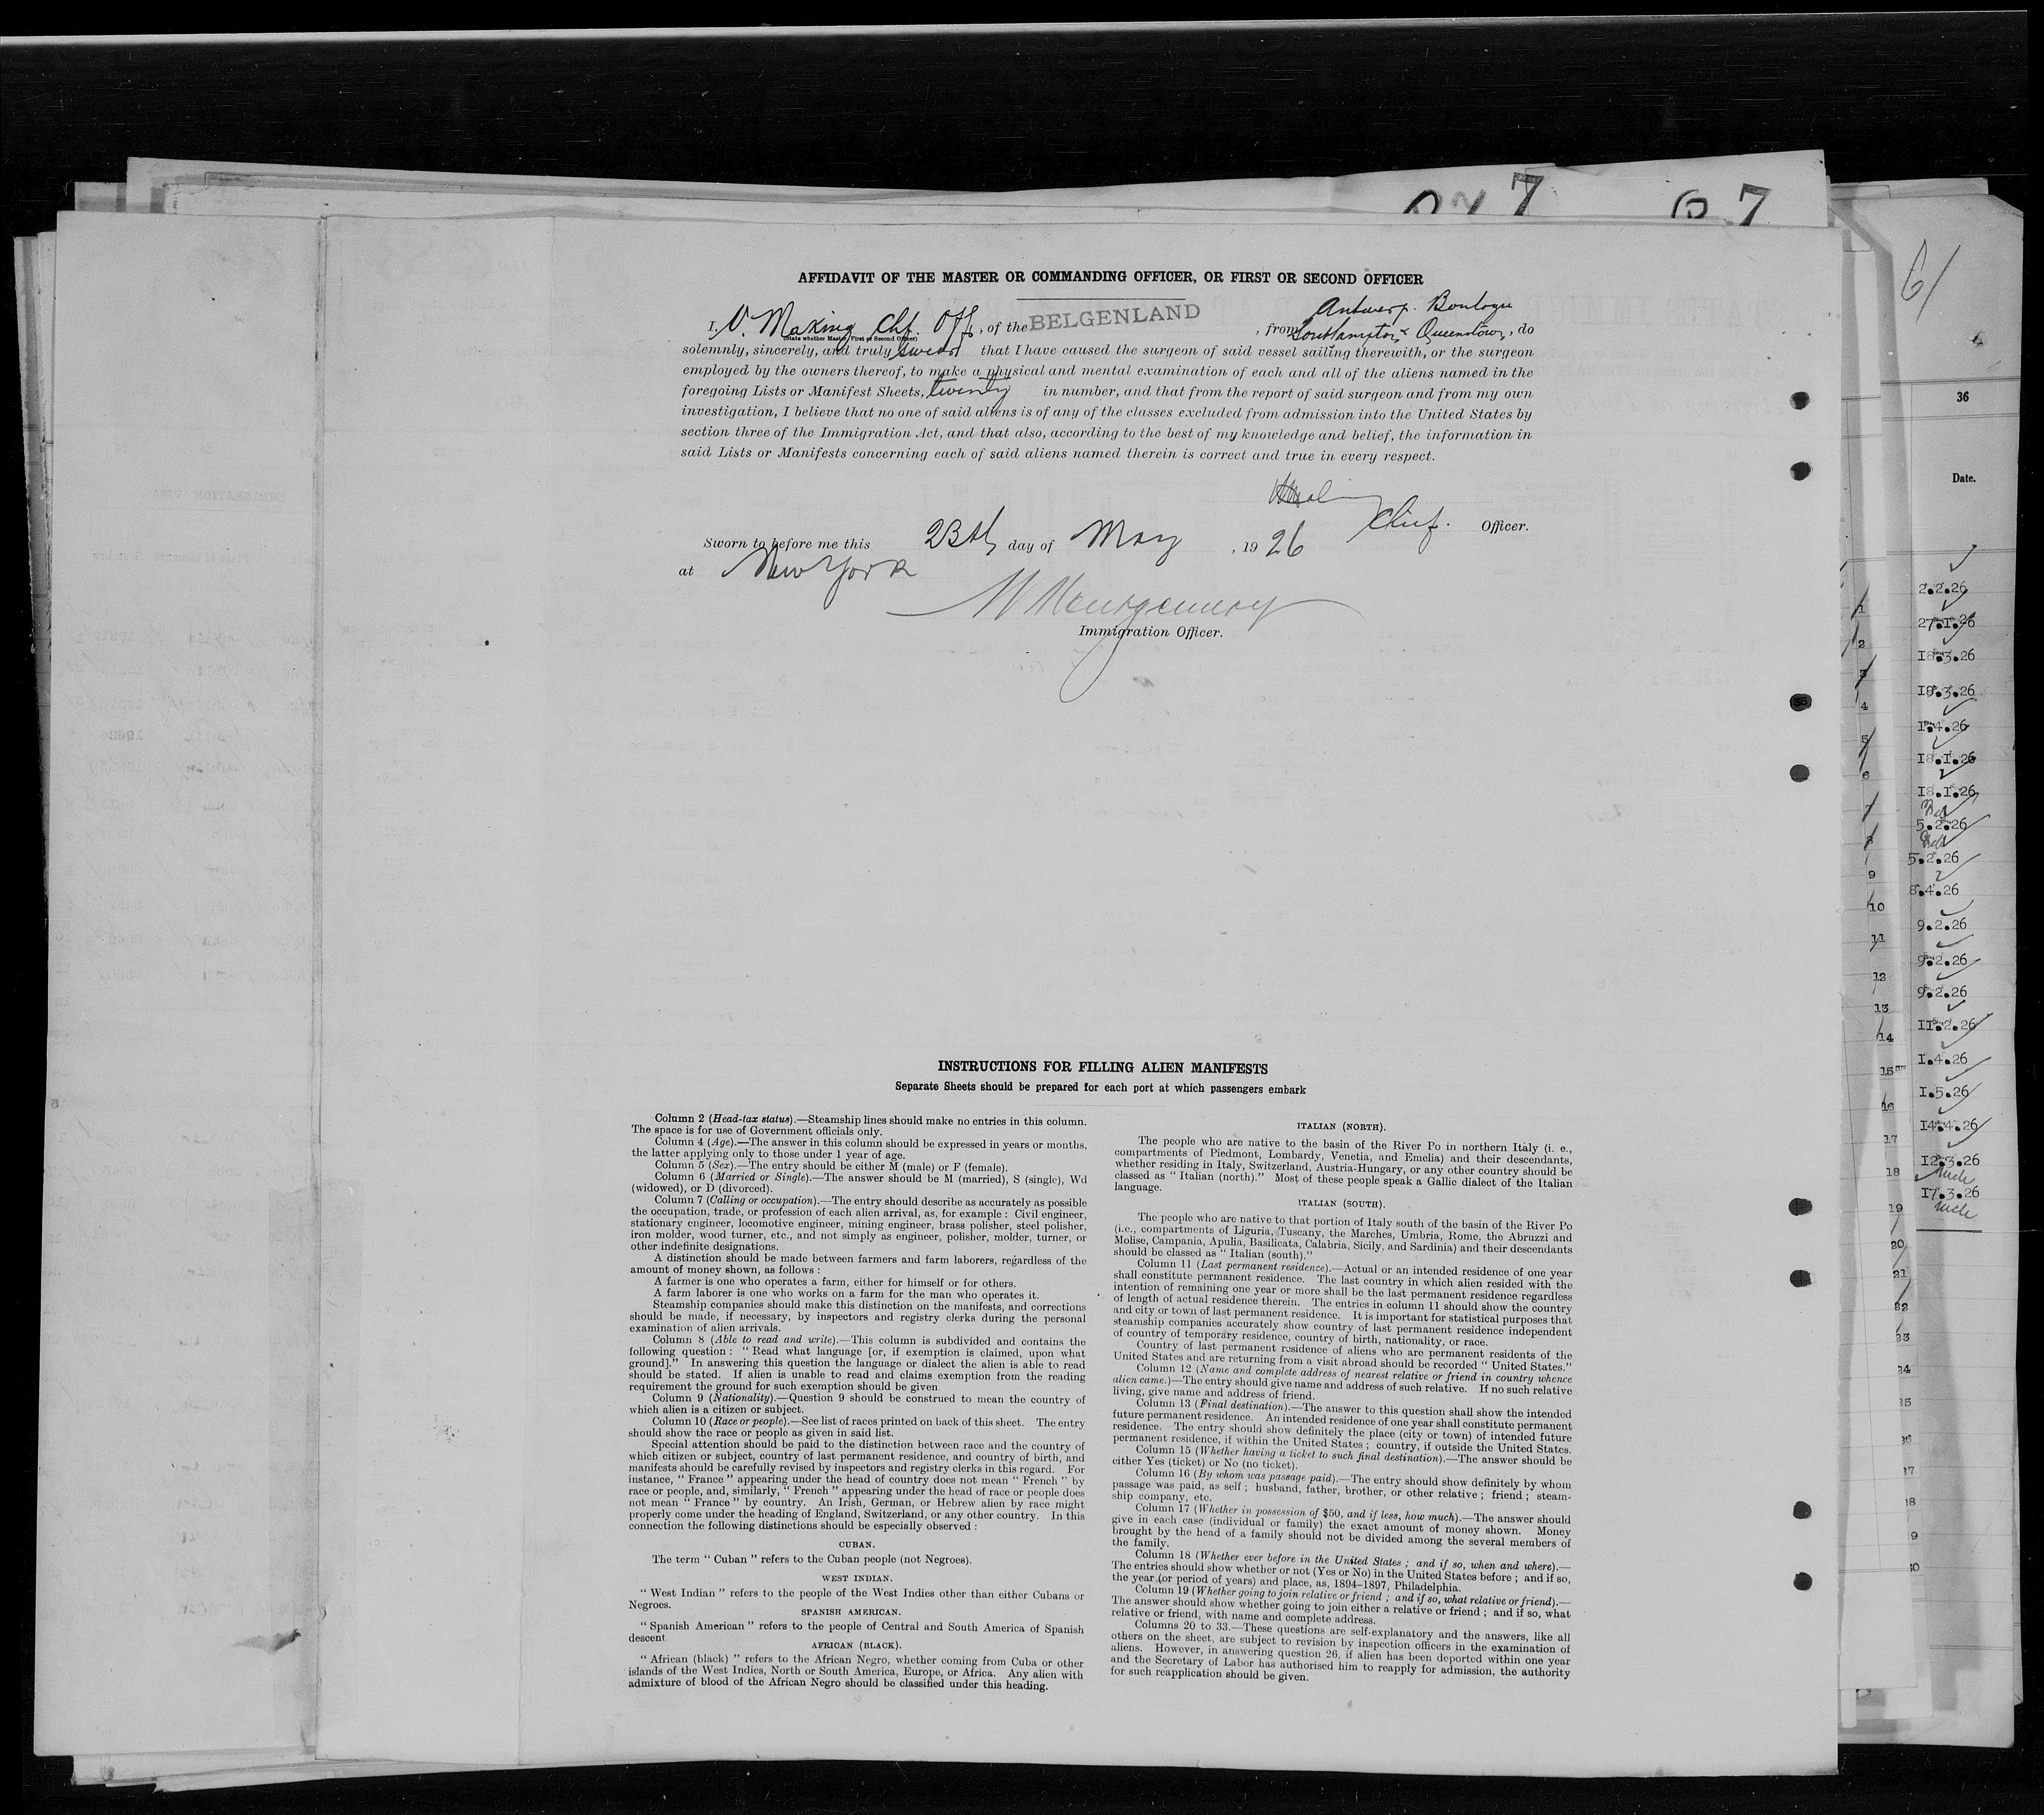 7 7
61
AFFIDAVIT OF THE MASTER OR COMMANDING OFFICER, OR FIRST OR SECOND OFFICER
Antwerp. Boulogne
I, V. Making Chf. Off., of the BELGENLAND, from Southampton & Queenstown, do
(State whether Master, First or Second Officer)
solemnly, sincerely, and truly swear that I have caused the surgeon of said vessel sailing therewith, or the surgeon
employed by the owners thereof, to make a physical and mental examination of each and all of the aliens named in the
foregoing Lists or Manifest Sheets, twenty in number, and that from the report of said surgeon and from my own
investigation, I believe that no one of said aliens is of any of the classes excluded from admission into the United States by
section three of the Immigration Act, and that also, according to the best of my knowledge and belief, the information in
said Lists or Manifests concerning each of said aliens named therein is correct and true in every respect.
Chief. Officer.
Sworn to before me this 23th day of May, 1926
at New York
Montgomery
Immigration Officer.
INSTRUCTIONS FOR FILLING ALIEN MANIFESTS
Separate Sheets should be prepared for each port at which passengers embark
Column 2 (Head-tax status).—Steamship lines should make no entries in this column.
The space is for use of Government officials only.
Column 4 (Age).—The answer in this column should be expressed in years or months,
the latter applying only to those under 1 year of age.
Column 5 (Sex).—The entry should be either M (male) or F (female).
Column 6 (Married or Single).—The answer should be M (married), S (single), Wd
(widowed), or D (divorced).
Column 7 (Calling or occupation).—The entry should describe as accurately as possible
the occupation, trade, or profession of each alien arrival, as, for example : Civil engineer,
stationary engineer, locomotive engineer, mining engineer, brass polisher, steel polisher,
iron molder, wood turner, etc., and not simply as engineer, polisher, molder, turner, or
other indefinite designations.
A distinction should be made between farmers and farm laborers, regardless of the
amount of money shown, as follows :
A farmer is one who operates a farm, either for himself or for others.
A farm laborer is one who works on a farm for the man who operates it.
Steamship companies should make this distinction on the manifests, and corrections
should be made, if necessary, by inspectors and registry clerks during the personal
examination of alien arrivals.
Column 8 (Able to read and write).—This column is subdivided and contains the
following question : “ Read what language [or, if exemption is claimed, upon what
ground].” In answering this question the language or dialect the alien is able to read
should be stated. If alien is unable to read and claims exemption from the reading
requirement the ground for such exemption should be given.
Column 9 (Nationality).—Question 9 should be construed to mean the country of
which alien is a citizen or subject.
Column 10 (Race or people).—See list of races printed on back of this sheet. The entry
should show the race or people as given in said list.
Special attention should be paid to the distinction between race and the country of
which citizen or subject, country of last permanent residence, and country of birth, and
manifests should be carefully revised by inspectors and registry clerks in this regard. For
instance, “ France ” appearing under the head of country does not mean “ French ” by
race or people, and, similarly, “ French ” appearing under the head of race or people does
not mean “ France ” by country. An Irish, German, or Hebrew alien by race might
properly come under the heading of England, Switzerland, or any other country. In this
connection the following distinctions should be especially observed :
CUBAN.
The term “ Cuban ” refers to the Cuban people (not Negroes).
WEST INDIAN.
“ West Indian ” refers to the people of the West Indies other than either Cubans or
Negroes.
SPANISH AMERICAN.
“ Spanish American ” refers to the people of Central and South America of Spanish
descent.
AFRICAN (BLACK).
“ African (black) ” refers to the African Negro, whether coming from Cuba or other
islands of the West Indies, North or South America, Europe, or Africa. Any alien with
admixture of blood of the African Negro should be classified under this heading.
ITALIAN (NORTH).
The people who are native to the basin of the River Po in northern Italy (i. e.,
compartments of Piedmont, Lombardy, Venetia, and Emelia) and their descendants,
whether residing in Italy, Switzerland, Austria-Hungary, or any other country should be
classed as “ Italian (north).” Most of these people speak a Gallic dialect of the Italian
language.
ITALIAN (SOUTH).
The people who are native to that portion of Italy south of the basin of the River Po
(i.e., compartments of Liguria, Tuscany, the Marches, Umbria, Rome, the Abruzzi and
Molise, Campania, Apulia, Basilicata, Calabria, Sicily, and Sardinia) and their descendants
should be classed as “ Italian (south).”
Column 11 (Last permanent residence).—Actual or an intended residence of one year
shall constitute permanent residence. The last country in which alien resided with the
intention of remaining one year or more shall be the last permanent residence regardless
of length of actual residence therein. The entries in column 11 should show the country
and city or town of last permanent residence. It is important for statistical purposes that
steamship companies accurately show country of last permanent residence independent
of country of temporary residence, country of birth, nationality, or race.
Country of last permanent residence of aliens who are permanent residents of the
United States and are returning from a visit abroad should be recorded “ United States.”
Column 12 (Name and complete address of nearest relative or friend in country whence
alien came.)—The entry should give name and address of such relative. If no such relative
living, give name and address of friend.
Column 13 (Final destination).—The answer to this question shall show the intended
future permanent residence. An intended residence of one year shall constitute permanent
residence. The entry should show definitely the place (city or town) of intended future
permanent residence, if within the United States ; country, if outside the United States.
Column 15 (Whether having a ticket to such final destination).—The answer should be
either Yes (ticket) or No (no ticket).
Column 16 (By whom was passage paid).—The entry should show definitely by whom
passage was paid, as self ; husband, father, brother, or other relative ; friend ; steam-
ship company, etc.
Column 17 (Whether in possession of $50, and if less, how much).—The answer should
give in each case (individual or family) the exact amount of money shown. Money
brought by the head of a family should not be divided among the several members of
the family.
Column 18 (Whether ever before in the United States ; and if so, when and where).—
The entries should show whether or not (Yes or No) in the United States before ; and if so,
the year (or period of years) and place, as, 1894-1897, Philadelphia.
Column 19 (Whether going to join relative or friend ; and if so, what relative or friend).—
The answer should show whether going to join either a relative or friend ; and if so, what
relative or friend, with name and complete address.
Columns 20 to 33.—These questions are self-explanatory and the answers, like all
others on the sheet, are subject to revision by inspection officers in the examination of
aliens. However, in answering question 26, if alien has been deported within one year
and the Secretary of Labor has authorised him to reapply for admission, the authority
for such reapplication should be given.
36
Date.
2.2.26
27.1.26
18.3.26
18.3.26
1.4.26
18.1.26
18.1.26
5.2.26
5.2.26
8.4.26
9.2.26
9.2.26
9.2.26
11.2.26
1.4.26
1.5.26
14.4.26
12.3.26
17.3.26
1
2
3
4
5
6
7
8
9
10
11
12
13
14
15
16
17
18
19
20
21
22
23
24